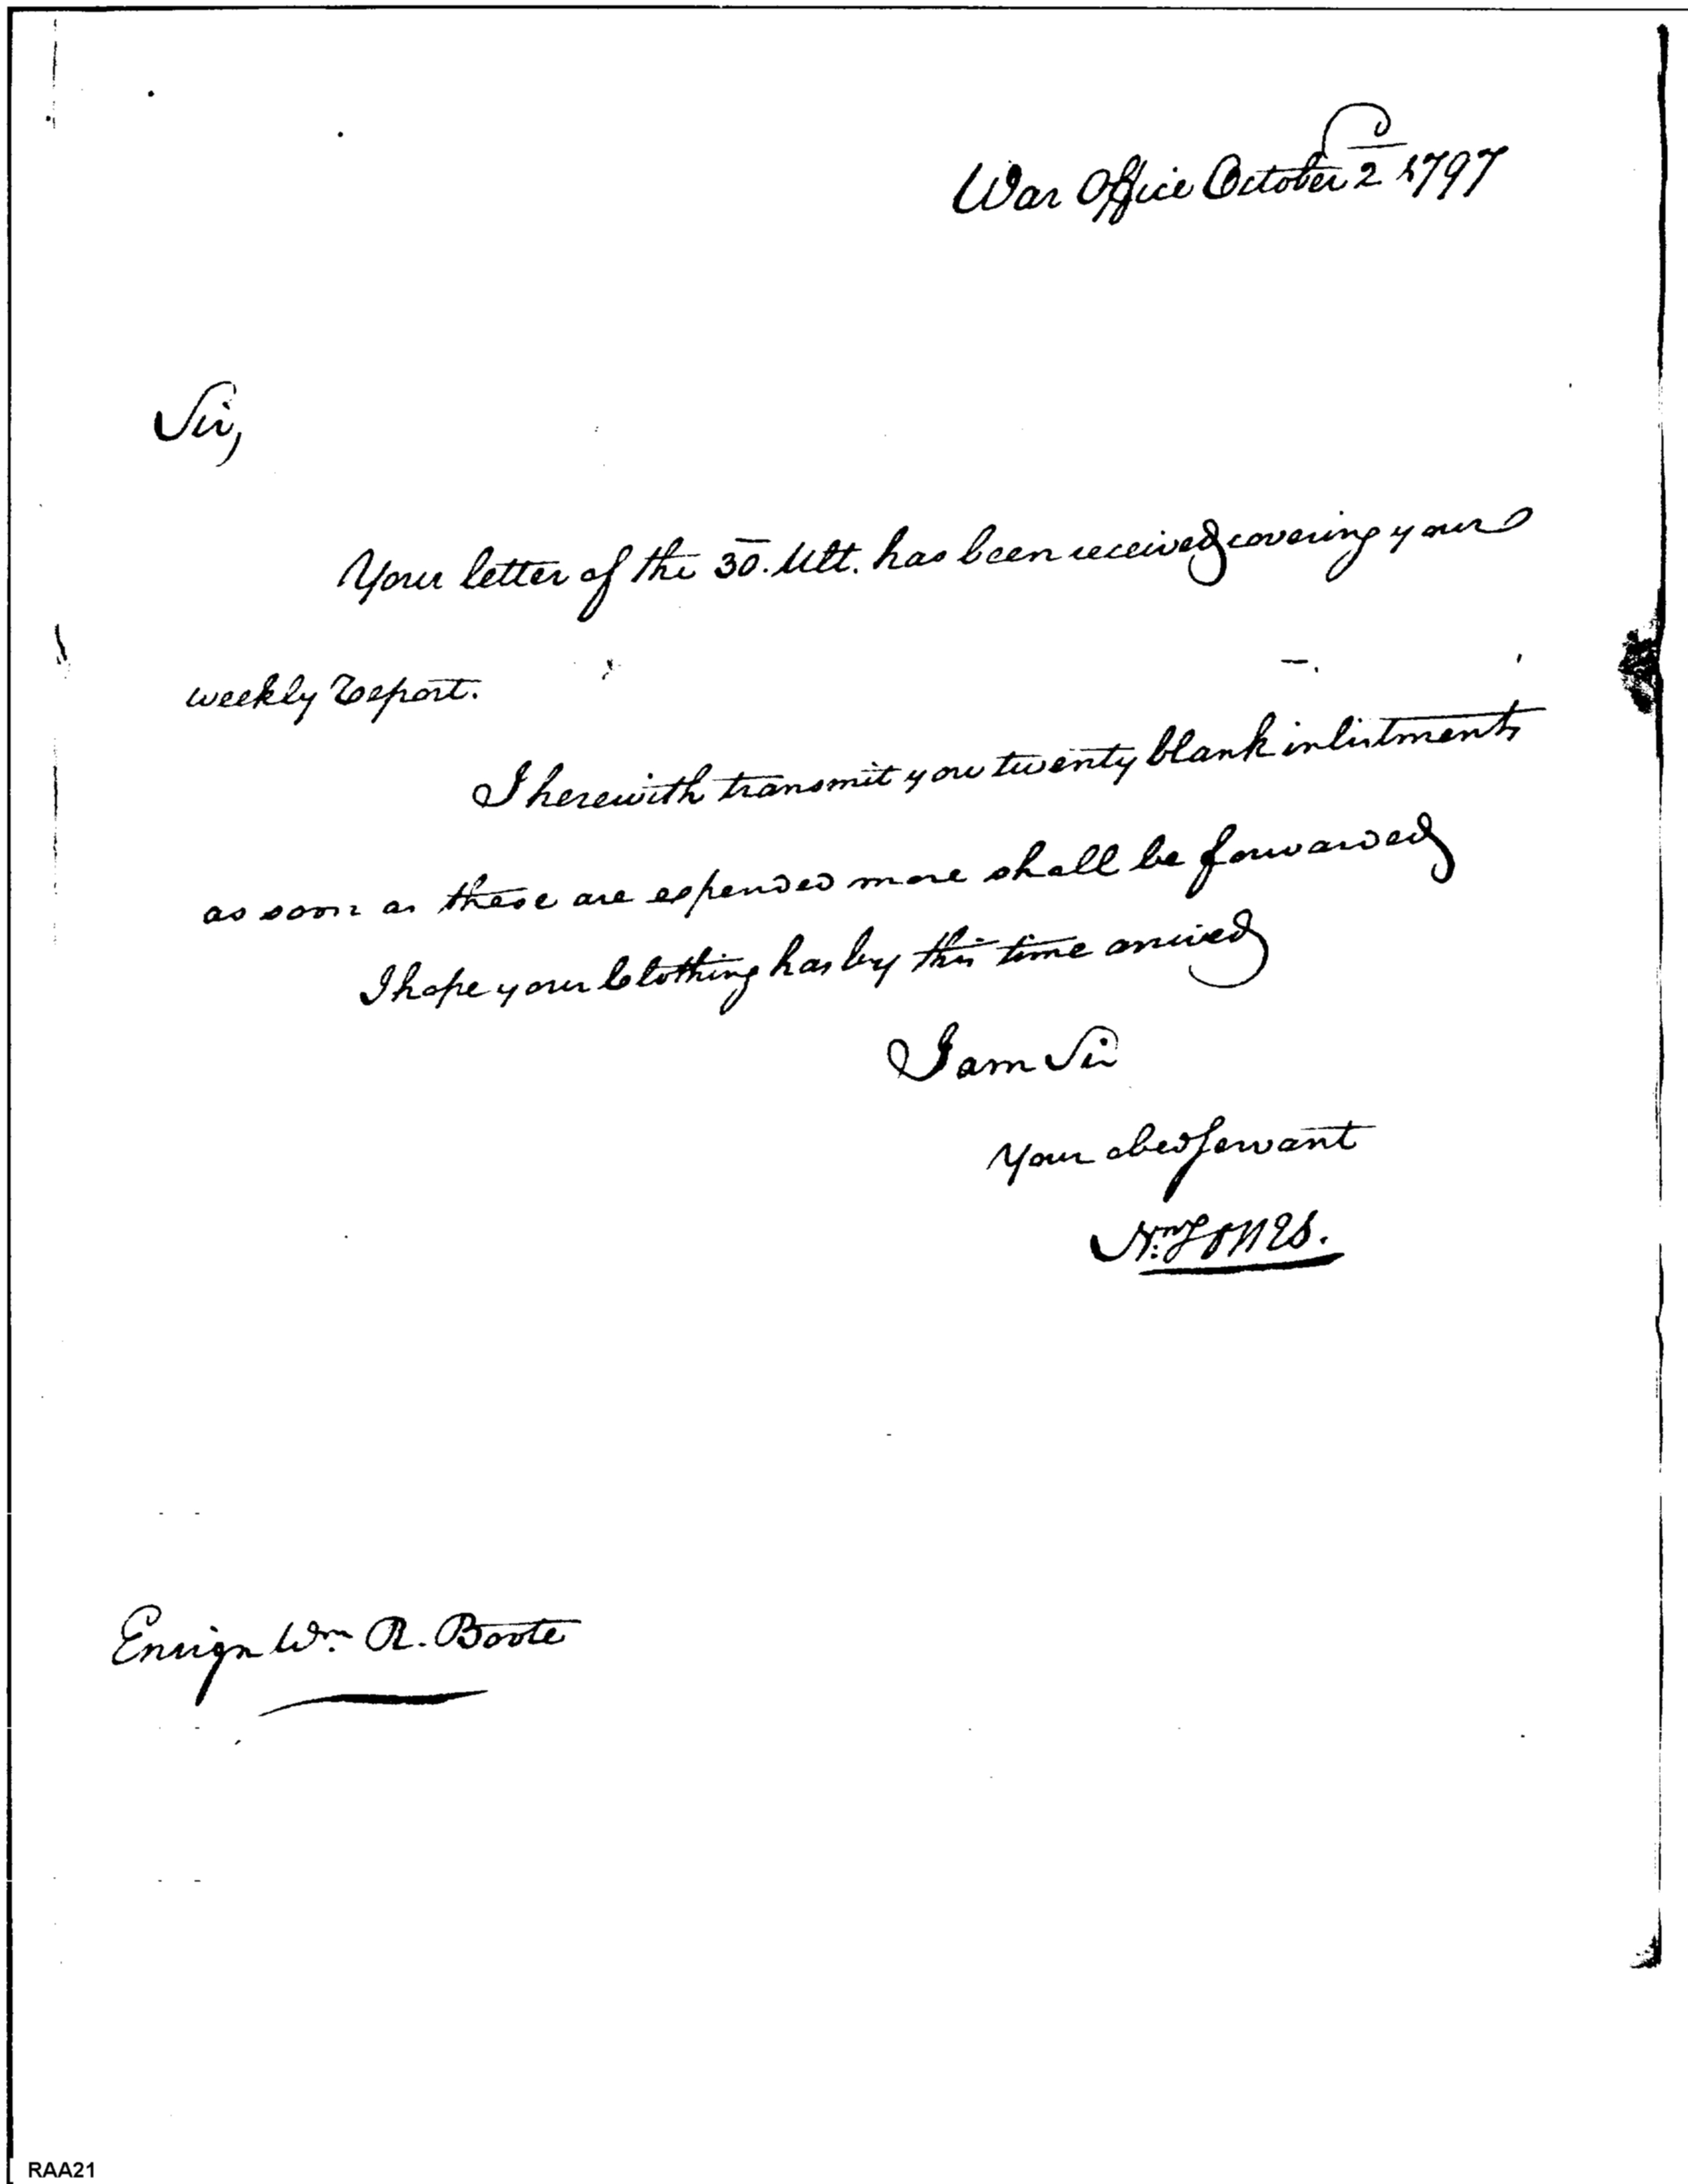 War Office October 2 1797
Sir,
Your letter of the 30. Ult. has been received covering your
weekly Report.
I herewith transmit you twenty blank inlistments
as soon as these are expended more shall be forwarded
I hope your Clothing has by this time arrived
I am Sir
Your obed Servant
Nn Jones.
Ensign Wm. R. Boote
RAA21